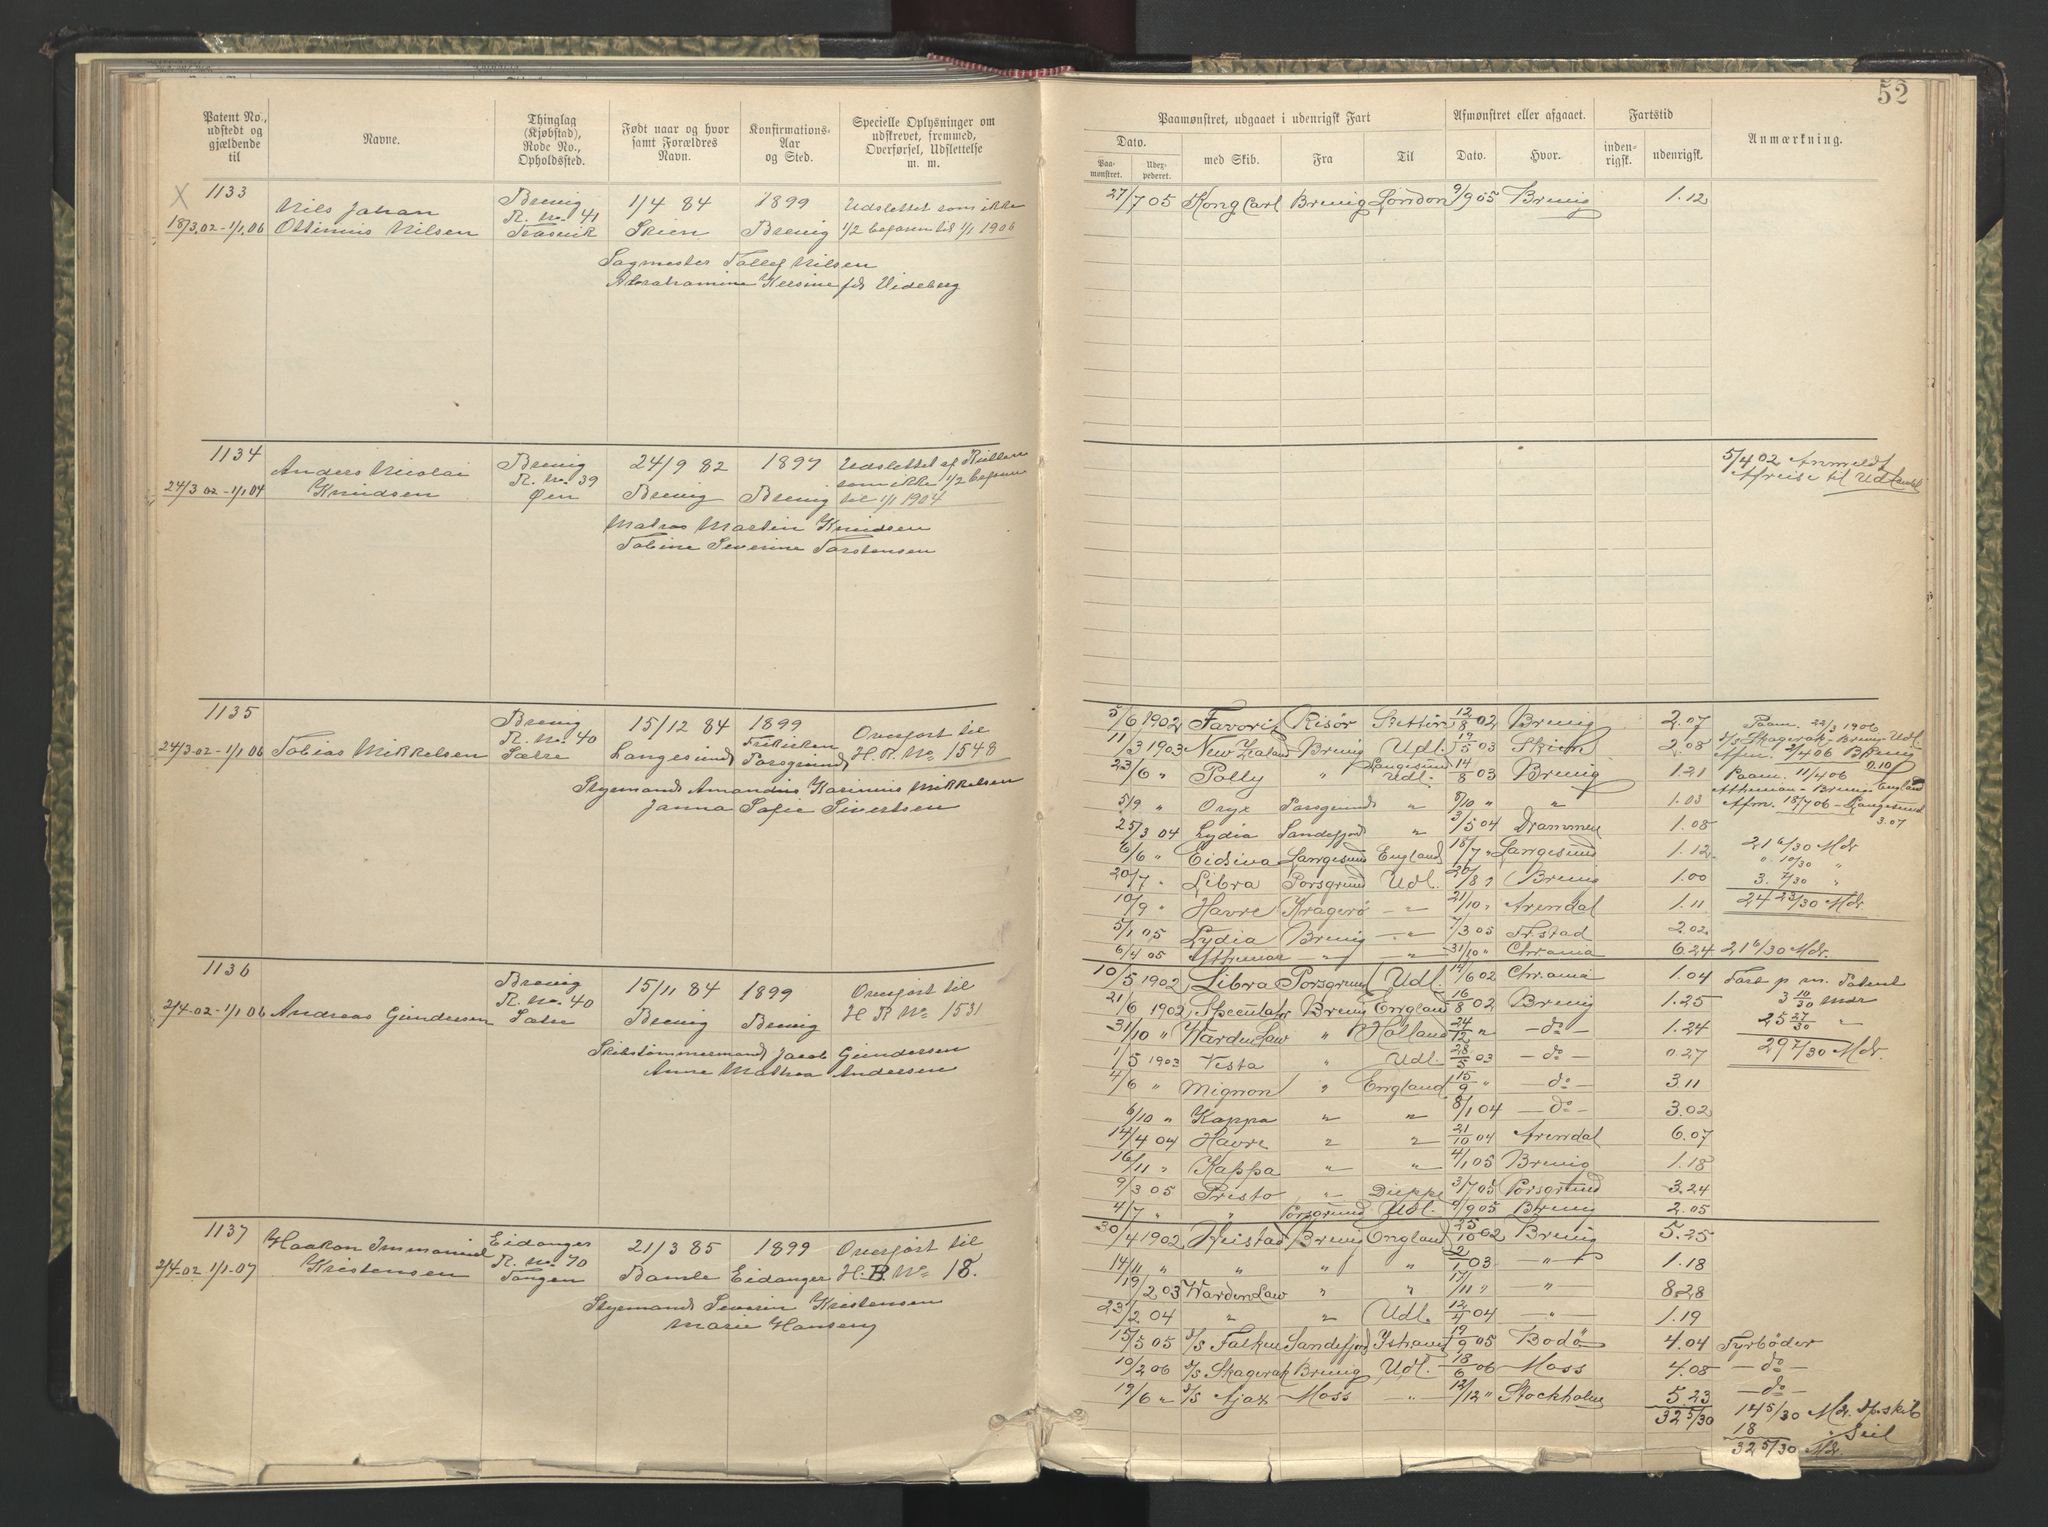 52
Patent No., udstedt og gjældende til
Navne.
Thinglag (Kjøbstad), Rode No., Opholdssted.
Født naar og hvor samt Forældres Navn.
Konfirmations-Aar og Sted.
Specielle Oplysninger om udskrevet, fremmed, Overførsel, Udslettelse m. m.
Paamønstret, udgaaet i udenrigsk Fart
Afmønstret eller afgaaet.
Fartstid
Anmærkning.
Dato. Paamønstret. Udexpederet.
med Skib. Fra Til Dato. Hvor. indenrigsk. udenrigsk.
X 1133
18/3.02-1/1.06
Nils Johan
Ottinius Nilsen
Brevig
R. No. 41
Trosvik
1/4 84
Skien
1899
Brevig
Udslettet som ikke
1/2 befaren til 1/1 1906
Sagmester Tollef Nilsen
Abrahamine Kersine fdt Videberg
27/7 05 Kong Carl Brevig London 9/9 05 Brevig 1.12
1134
24/3 02-1/1 04
Anders Nicolai
Knudsen
Brevig
R. No. 39
Øen
24/9 82
Brevig
1897
Brevig
Udslettet af Rullen
som ikke 1/2 befaren
til 1/1 1904
Matros Martin Knudsen
Tobine Severine Torstensen
5/4 02 Anmeldt
Afreise til Udlandet
1135
24/3-02-1/1 06
Tobias Mikkelsen
Brevig
R. No. 40
Sætre
15/12 84
Langesund
1899
Frikirken
Porsgrund
Overført til
H. R. No 1548
Styrmand Amandus Karinius Mikkelsen
Janna Sofie Sivertsen
5/6 1902 Favorit Risör Stettin 12/8 02 Brevig 2.07
11/3 1903 New Zealand Brevig Udl. 19/5 03 Skien 2.08
23/6 " Polly " Langesund Udl. 14/8 03 Brevig 1.21
5/9 " Oryx Porsgrund " 8/10 " " 1.03
25/3 04 Lydia Sandefjord " 3/5 04 Drammen 1.08
6/6 " Eidsiva Langesund England 18/7 " Langesund 1.12
20/7 " Libra Porsgrund Udl. 20/8 " Brevig 1.00
10/9 " Havre Kragerö — " — 21/10 " Arendal 1.11
5/1 05 Lydia Brevig — " — 7/3 05 Fr.stad 2.02
6/4 05 Athenian — " — — " — 31/10 " Chrania 6.24
Paam. 22/3 1906
S/S Skagerak - Brevig - Udl.
Afm. 2/4 06 Brevig
0.10
Paam. 11/4 06
Athenian - Brevig England
Afm. 18/7 06 - Langesund
3.07
21 6/30 Mdr
0. 10/30 "
3. 7/30 "
24 23/30 Mdr
21 6/30 Mdr.
1136
2/4-02-1/1 06
Andreas Gundersen
Brevig
R. No. 40
Sætre
15/11 84
Brevig
1899
Brevig
Overført til
H R No 1531
Skibstømmermand Jacob Gundersen
Anne Mathea Andersen
10/5 1902 Libra Porsgrund Udl. 14/6 02 Chrania 1.04
21/6 1902 Speculator Brevig England 16/8 02 Brevig 1.25
31/10 " Warden Law " Holland 24/12 " — do — 1.24
1/5 1903 Vesta " Udl. 28/5 03 — do — 0.27
4/6 " Mignon " England 15/9 " — do — 3.11
6/10 " Kappa " " 8/1 04 — do — 3.02
14/4 04 Havre " " 21/10 04 Arendal 6.07
16/11 " Kappa " " 4/1 05 Brevig 1.18
9/3 05 Presto " Dieppe 3/7 05 Porsgrund 3.24
4/7 " " Porsgrund Udl. 9/9 05 Brevig 2.05
Fart p m. Patent
3 10/30 Mdr
25 27/30 "
29 7/30 Mdr.
1137
2/4-02 1/1-07
Haakon Immanuel
Kristensen
Eidanger
R. No. 70
Tangen
21/3 85
Bamle
1899
Eidanger
Overført til
H.B. No 18.
Styrmand Severin Kristensen
Marie Hansen
30/4 1902 Heistad Brevig England 25/10 02 Brevig 5.25
14/11 " " " " 2/1 03 — " — 1.18
19/2 03 Warden Law " " 17/11 " " 8.28
23/2 04 " " Udl. 12/4 04 " 1.19
15/5 05 S/S Falken Sandefjord Ishavet 19/9 05 Bodö 4.04 Fyrböder
10/2 06 S/S Skagerak Brevig Udl. 18/6 06 Moss 4.08 — do —
19/6 " S/S Ajax Moss — " — 12/12 " Stockholm 5.23 — do —
32 5/30
14 5/30 Md. Dp.skib
18 " Seil
32 5/30 Md.